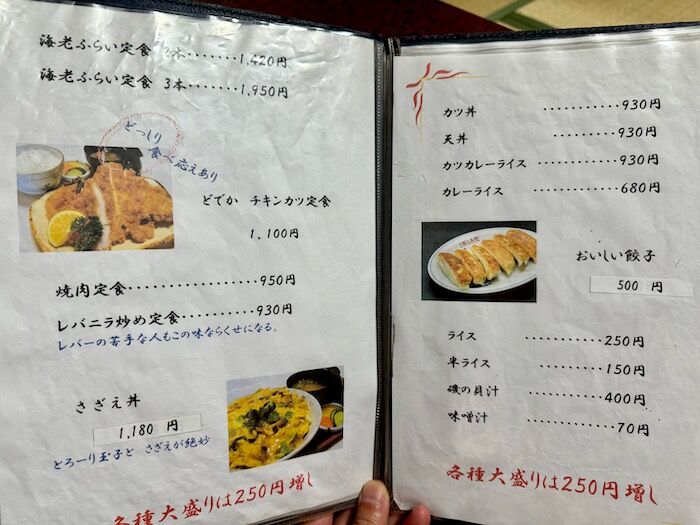 海老ふらい定食 2本・・・・・・・1,420円
海老ふらい定食 3本・・・・・・・1,950円
どっしり
食べ応えあり
どでか チキンカツ定食
1,100円
焼肉定食・・・・・・・・・・・・・・・・950円
レバニラ炒め定食・・・・・・・・・・930円
レバーの苦手な人もこの味ならくせになる。
さざえ丼
1,180 円
とろーり玉子と さざえが絶妙
各種大盛りは250円増し
カツ丼 ・・・・・・・・・・・930円
天丼 ・・・・・・・・・・・930円
カツカレーライス・・・・・・・・・・・・930円
カレーライス ・・・・・・・・・・・・680円
おいしい餃子
500 円
ライス ・・・・・・・・・・・250円
半ライス ・・・・・・・・・・・150円
磯の貝汁 ・・・・・・・・・・・400円
味噌汁 ・・・・・・・・・・・・70円
各種大盛りは250円増し